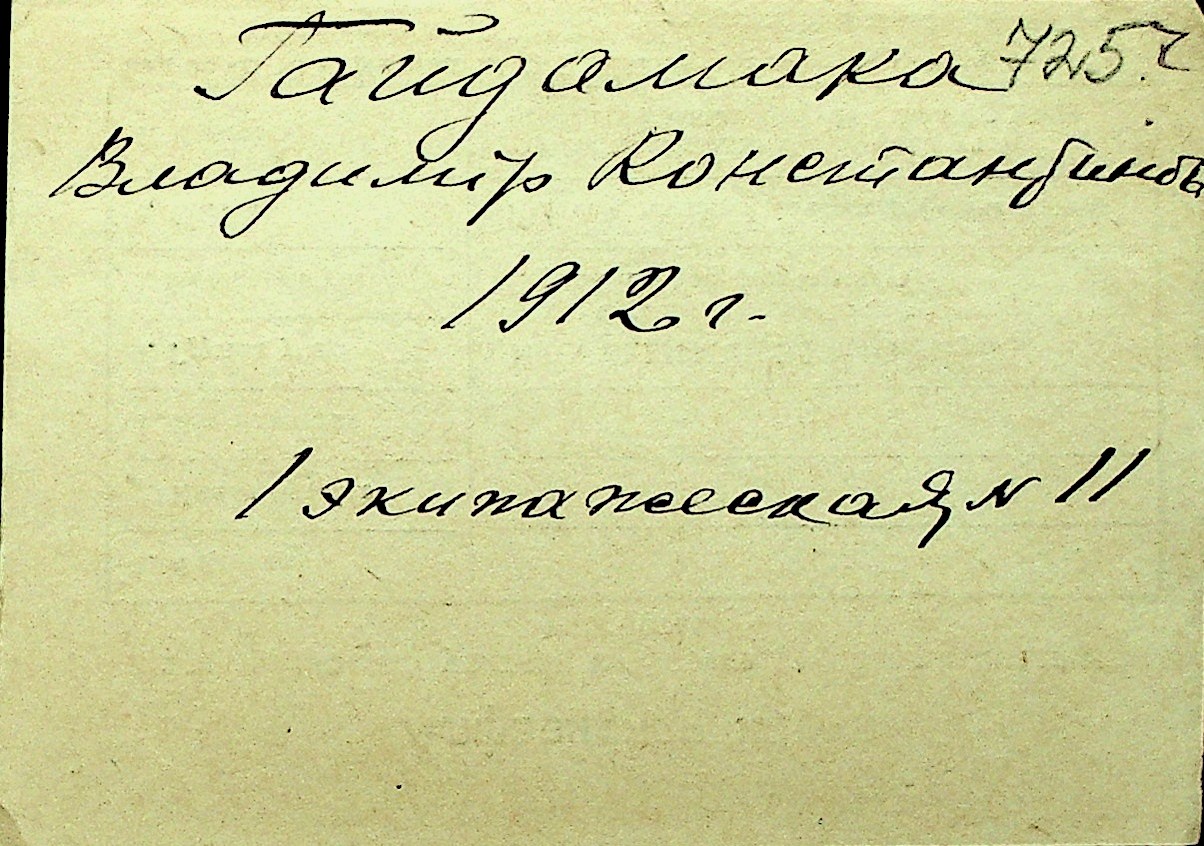 Гайдамака 725.
Владимір Константинов
1912 г.
1 экипажеская, N 11